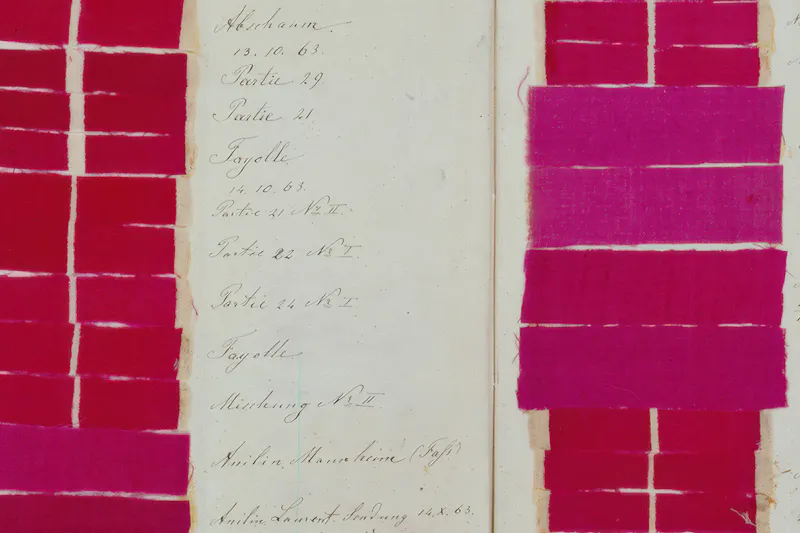 Abschaum.
13. 10. 63.
Partie 29
Partie 21
Fayolle
14. 10. 63.
Partie 21 No II.
Partie 22 No I
Partie 24 No I
Fayolle
Mischung No II
Anilin Mannheim (Faß)
Anilin Laurent. Sendung 14. X. 63.